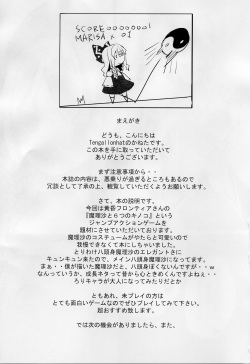 SCORE 0000000!
MARISA × 01
まえがき
どうも、こんにちは
Tengallonhatのかねたです。
この本を手に取っていただいて
ありがとうございます。
まず注意事項から・・
本誌の内容は、悪乗りが過ぎるところもあるので
冗談として了承の上、観覧していただくようお願いします。
さて、本の説明です。
今回は黄昏フロンティアさんの
『魔理沙と6つのキノコ』という
ジャンプアクションゲームを
題材にさせていただいております。
魔理沙のコスチュームがやたらと可愛いので
我慢できなくて本にしちゃいました。
とりわけ八頭身魔理沙のエレガントさに
キュンキュン来たので、メイン八頭身魔理沙になってます。
まぁ・・僕が描いた魔理沙だと、八頭身ぽくないんですが・・・w
なんっていうか、成長ネタって昔から心ときめくんですよねぇ・・
ろりキャラが大人になってみたりだとか
ともあれ、未プレイの方は
とても面白いゲームなのでぜひプレイしてみて下さい。
超おすすめ致します。
では次の機会がありましたら、また、